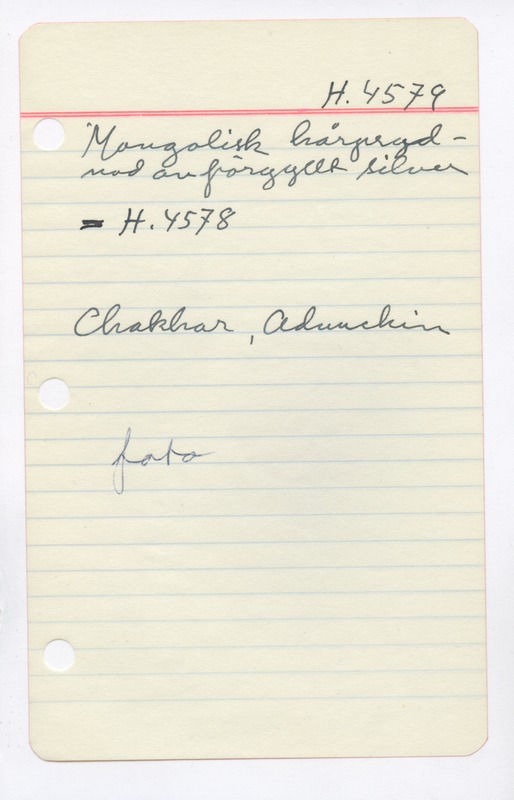 H. 4579
Mongolisk hårpryd-
nad av förgyllt silver
= H. 4578
Chakhar, Aduuchin
foto